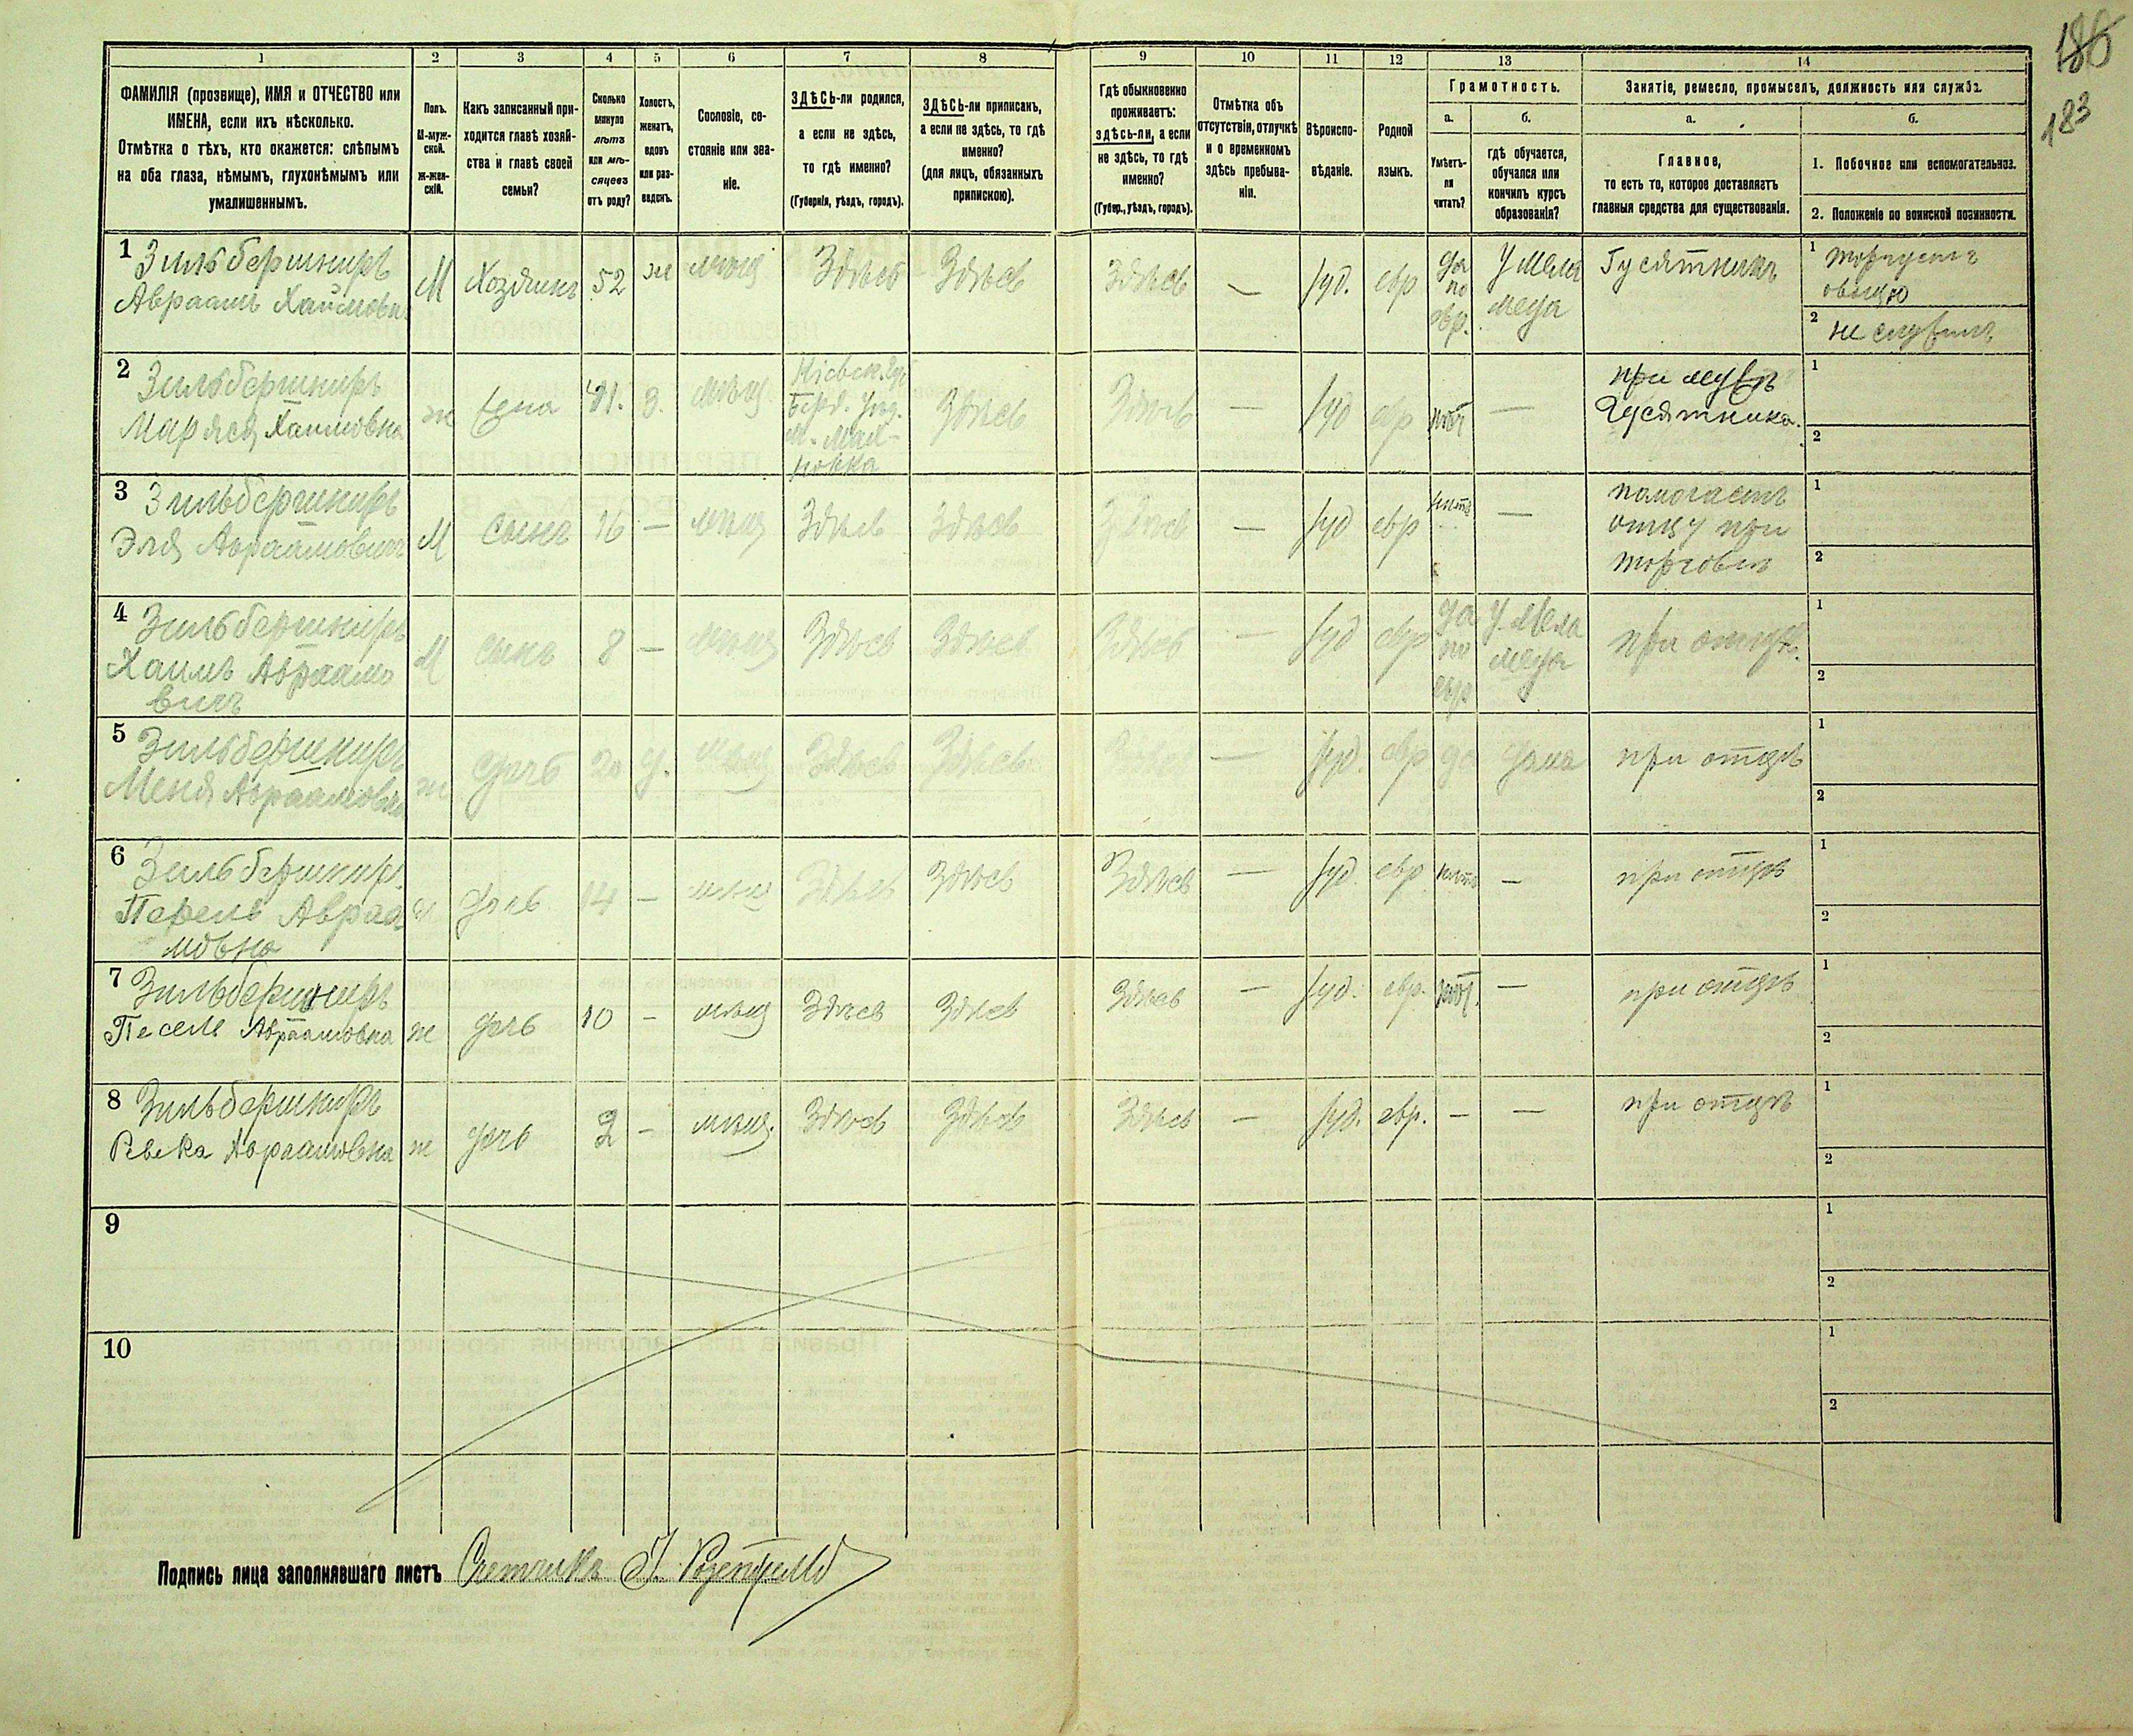 186
183
1 2 3 4 5 6 7 8 9 10 11 12 13 14
ФАМИЛІЯ (прозвище), ИМЯ и ОТЧЕСТВО или
ИМЕНА, если ихъ нѣсколько.
Отмѣтка о тѣхъ, кто окажется: слѣпымъ
на оба глаза, нѣмымъ, глухонѣмымъ или
умалишеннымъ.
Полъ.
М-муж-
ской.
Ж-жен-
скій.
Какъ записанный при-
ходится главѣ хозяй-
ства и главѣ своей
семьи?
Сколько
минуло
лѣтъ
или мѣ-
сяцевъ
отъ роду?
Холостъ,
женатъ,
вдовъ
или раз-
веденъ.
Сословіе, со-
стояніе или зва-
ніе.
ЗДѢСЬ-ли родился,
а если не здѣсь,
то гдѣ именно?
(Губернія, уѣздъ, городъ).
ЗДѢСЬ-ли приписанъ,
а если не здѣсь, то гдѣ
именно?
(для лицъ, обязанныхъ
припискою).
Гдѣ обыкновенно
проживаетъ:
здѣсь-ли, а если
не здѣсь, то гдѣ
именно?
(Губер., уѣздъ, городъ).
Отмѣтка объ
отсутствіи, отлучкѣ
и о временномъ
здѣсь пребыва-
ніи.
Вѣроиспо-
вѣданіе.
Родной
языкъ.
Грамотность.
а.
Умѣетъ-
ли
читать?
б.
гдѣ обучается,
обучался или
кончилъ курсъ
образованія?
Занятіе, ремесло, промыселъ, должность или служба.
а.
Главное,
то есть то, которое доставляетъ
главныя средства для существованія.
б.
1. Побочное или вспомогательное.
2. Положеніе по воинской повинности.
1 Зильбершкиръ
Авраамъ Хаимовъ
М Хозяинъ 52 ж мѣщ Здѣсь Здѣсь Здѣсь — Іуд. евр
да
по
евр.
У мела
меда
Гусятникъ
1 торгуетъ
овощю
2 не служилъ
2 Зильбершкиръ
Маряся Хаимовна
ж жена 41. З. мѣщ.
Кіевск. Гу
Берд. Уѣзд.
м. Мах-
новка
Здѣсь Здѣсь — Іуд евр нѣтъ —
при мужѣ
Гусятника.
1
2
3 Зильбершкиръ
Эля Авраамовичъ
М сынъ 16 — мѣщ Здѣсь Здѣсь Здѣсь — Іуд евр нѣтъ —
помогаетъ
отцу при
торговлѣ
1
2
4 Зильбершкиръ
Хаимъ Авраамо
вичъ
М сынъ 8 — мѣщ Здѣсь Здѣсь Здѣсь — Іуд евр
да
по
евр
У Мела
меда
при отцѣ.
1
2
5 Зильбершкиръ
Меня Авраамовна
ж дочь 20 д. мѣщ Здѣсь Здѣсь Здѣсь — Іуд. евр да дома при отцѣ
1
2
6 Зильбершкир.
Перель Авраа
мовна
ж дочь 14 — мѣщ Здѣсь Здѣсь Здѣсь — Іуд. евр нѣтъ — при отцѣ
1
2
7 Зильбершкиръ
Песель Авраамовна
ж дочь 10 — мѣщ Здѣсь Здѣсь Здѣсь — Іуд. евр. нѣт. — при отцѣ
1
2
8 Зильбершкиръ
Ривка Авраамовна
ж дочь 2 — мѣщ. Здѣсь Здѣсь Здѣсь — Іуд. евр. — — при отцѣ
1
2
9
1
2
10
1
2
Подпись лица заполнявшаго листъ Счетчикъ Розенфельд